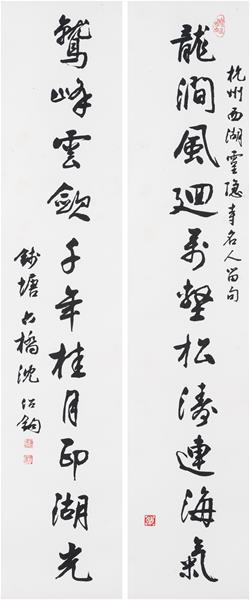 龍澗風迴萬壑松濤連海氣
杭州西湖靈隐寺名人留句
鷲峰雲歛千年桂月印湖光
錢塘大橋沈